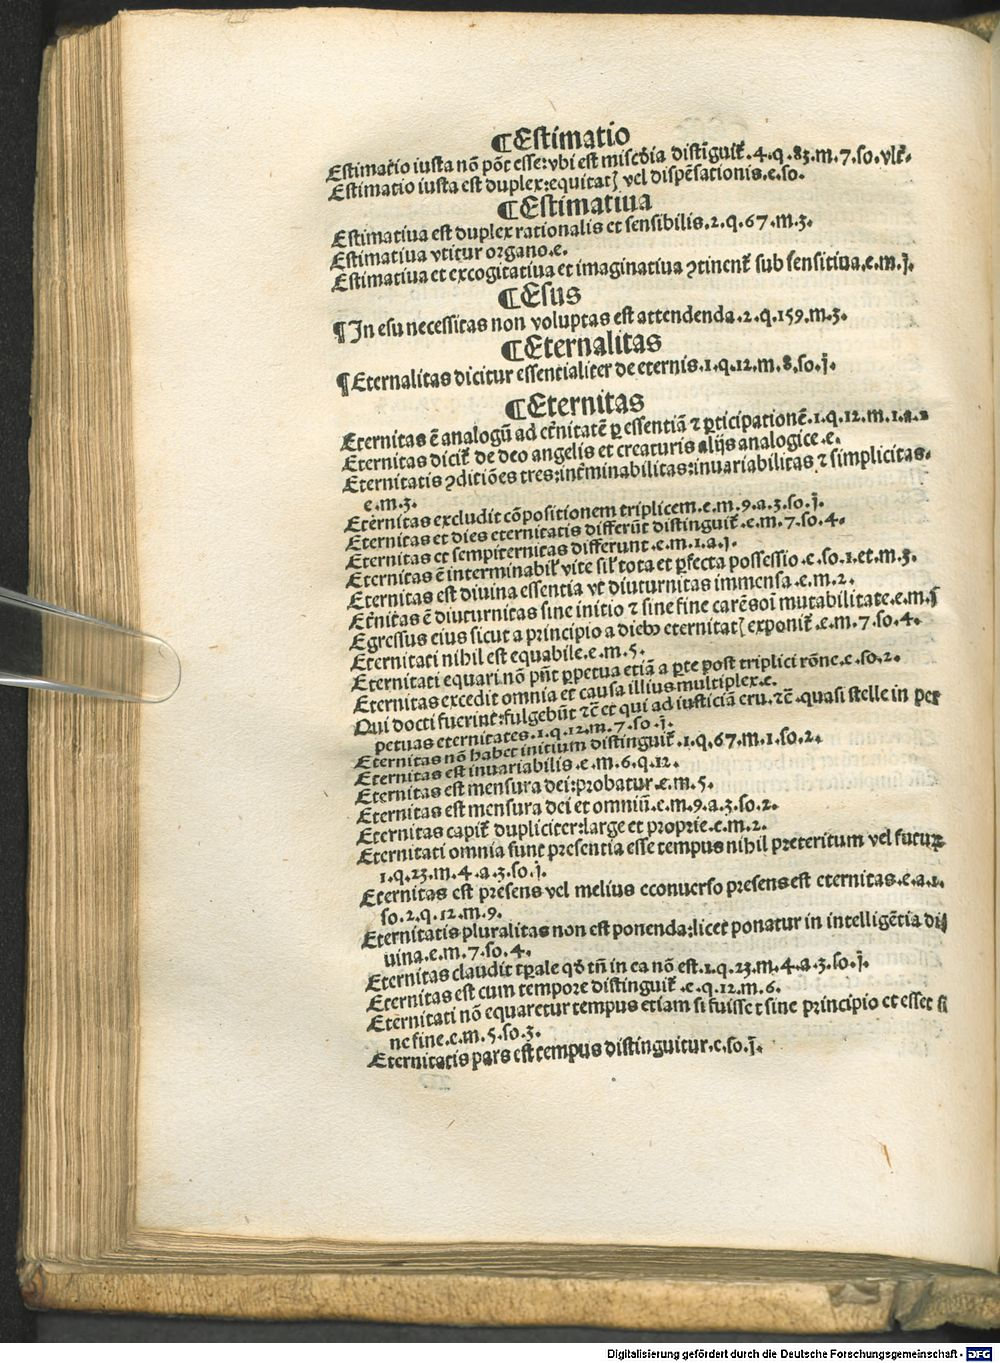 ¶Estimatio
Estimatio iusta nō pōt esse: vbi est misericōdia distīguit̄.4.q.83.m.7.so.vlt̄.
Estimatio iusta est duplex: equitatꝭ vel dispēsationis.e.so.
¶Estimatiua
Estimatiua est duplex rationalis et sensibilis.2.q.67.m.3.
Estimatiua vtitur organo.e.
Estimatiua et excogitatiua et imaginatiua ↄtinent̄ sub sensitiua.e.m.j̄.
¶Esus
¶In esu necessitas non voluptas est attendenda.2.q.159.m.3.
¶Eternalitas
¶Eternalitas dicitur essentialiter de eternis.1.q.12.m.8.so.j̄.
¶Eternitas
Eternitas ē analogū ad et̄nitatē ꝑ essentiā ⁊ ꝑticipationē.1.q.12.m.1.a.2
Eternitas dicit̄ de deo angelis et creaturis alijs analogice.e.
Eternitatis ↄditiōes tres: int̄minabilitas: inuariabilitas ⁊ simplicitas.
e.m.3.
Eternitas excludit cōpositionem triplicem.e.m.9.a.3.so.j̄.
Eternitas et dies eternitatis differūt distinguit̄.e.m.7.so.4.
Eternitas et sempiternitas differunt.e.m.1.a.j.
Eternitas ē interminabil̄ vite sil̄ tota et ꝑfecta possessio.e.so.1.et.m.3.
Eternitas est diuina essentia vt diuturnitas immensa.e.m.2.
Et̄nitas ē diuturnitas sine initio ⁊ sine fine carēs oī mutabilitate.e.m.5
Egressus eius sicut a principio a dieb⁹ eternitatꝭ exponit̄.e.m.7.so.4.
Eternitati nihil est equabile.e.m.5.
Eternitati equari nō pn̄t ꝑpetua etiā a ꝑte post triplici rōne.e.so.2.
Eternitas excedit omnia et causa illius multiplex.e.
Qui docti fuerint: fulgebūt ⁊ē et qui ad iusticiā eru.⁊ē.quasi stelle in per
petuas eternitates.1.q.12.m.7.so.j̄.
Eternitas nō habet initium distinguit̄.1.q.67.m.1.so.2.
Eternitas est inuariabilis.e.m.6.q.12.
Eternitas est mensura dei: probatur.e.m.5.
Eternitas est mensura dei et omniū.e.m.9.a.3.so.2.
Eternitas capit̄ dupliciter: large et proprie.e.m.2.
Eternitati omnia sunt presentia esse tempus nihil preteritum vel futuꝝ
1.q.23.m.4.a.3.so.j̄.
Eternitas est presens vel melius econuerso presens est eternitas.e.a.1.
so.2.q.12.m.9.
Eternitatis pluralitas non est ponenda: licet ponatur in intelligētia di
uina.e.m.7.so.4.
Eternitas claudit tꝑale qd̄ tn̄ in ea nō est.1.q.23.m.4.a.3.so.j̄.
Eternitas est cum tempore distinguit̄.e.q.12.m.6.
Eternitati nō equaretur tempus etiam si fuisset sine principio et esset si
ne fine.e.m.5.so.3.
Eternitatis pars est tempus distinguitur.e.so.j̄.
Digitalisierung gefördert durch die Deutsche Forschungsgemeinschaft - DFG